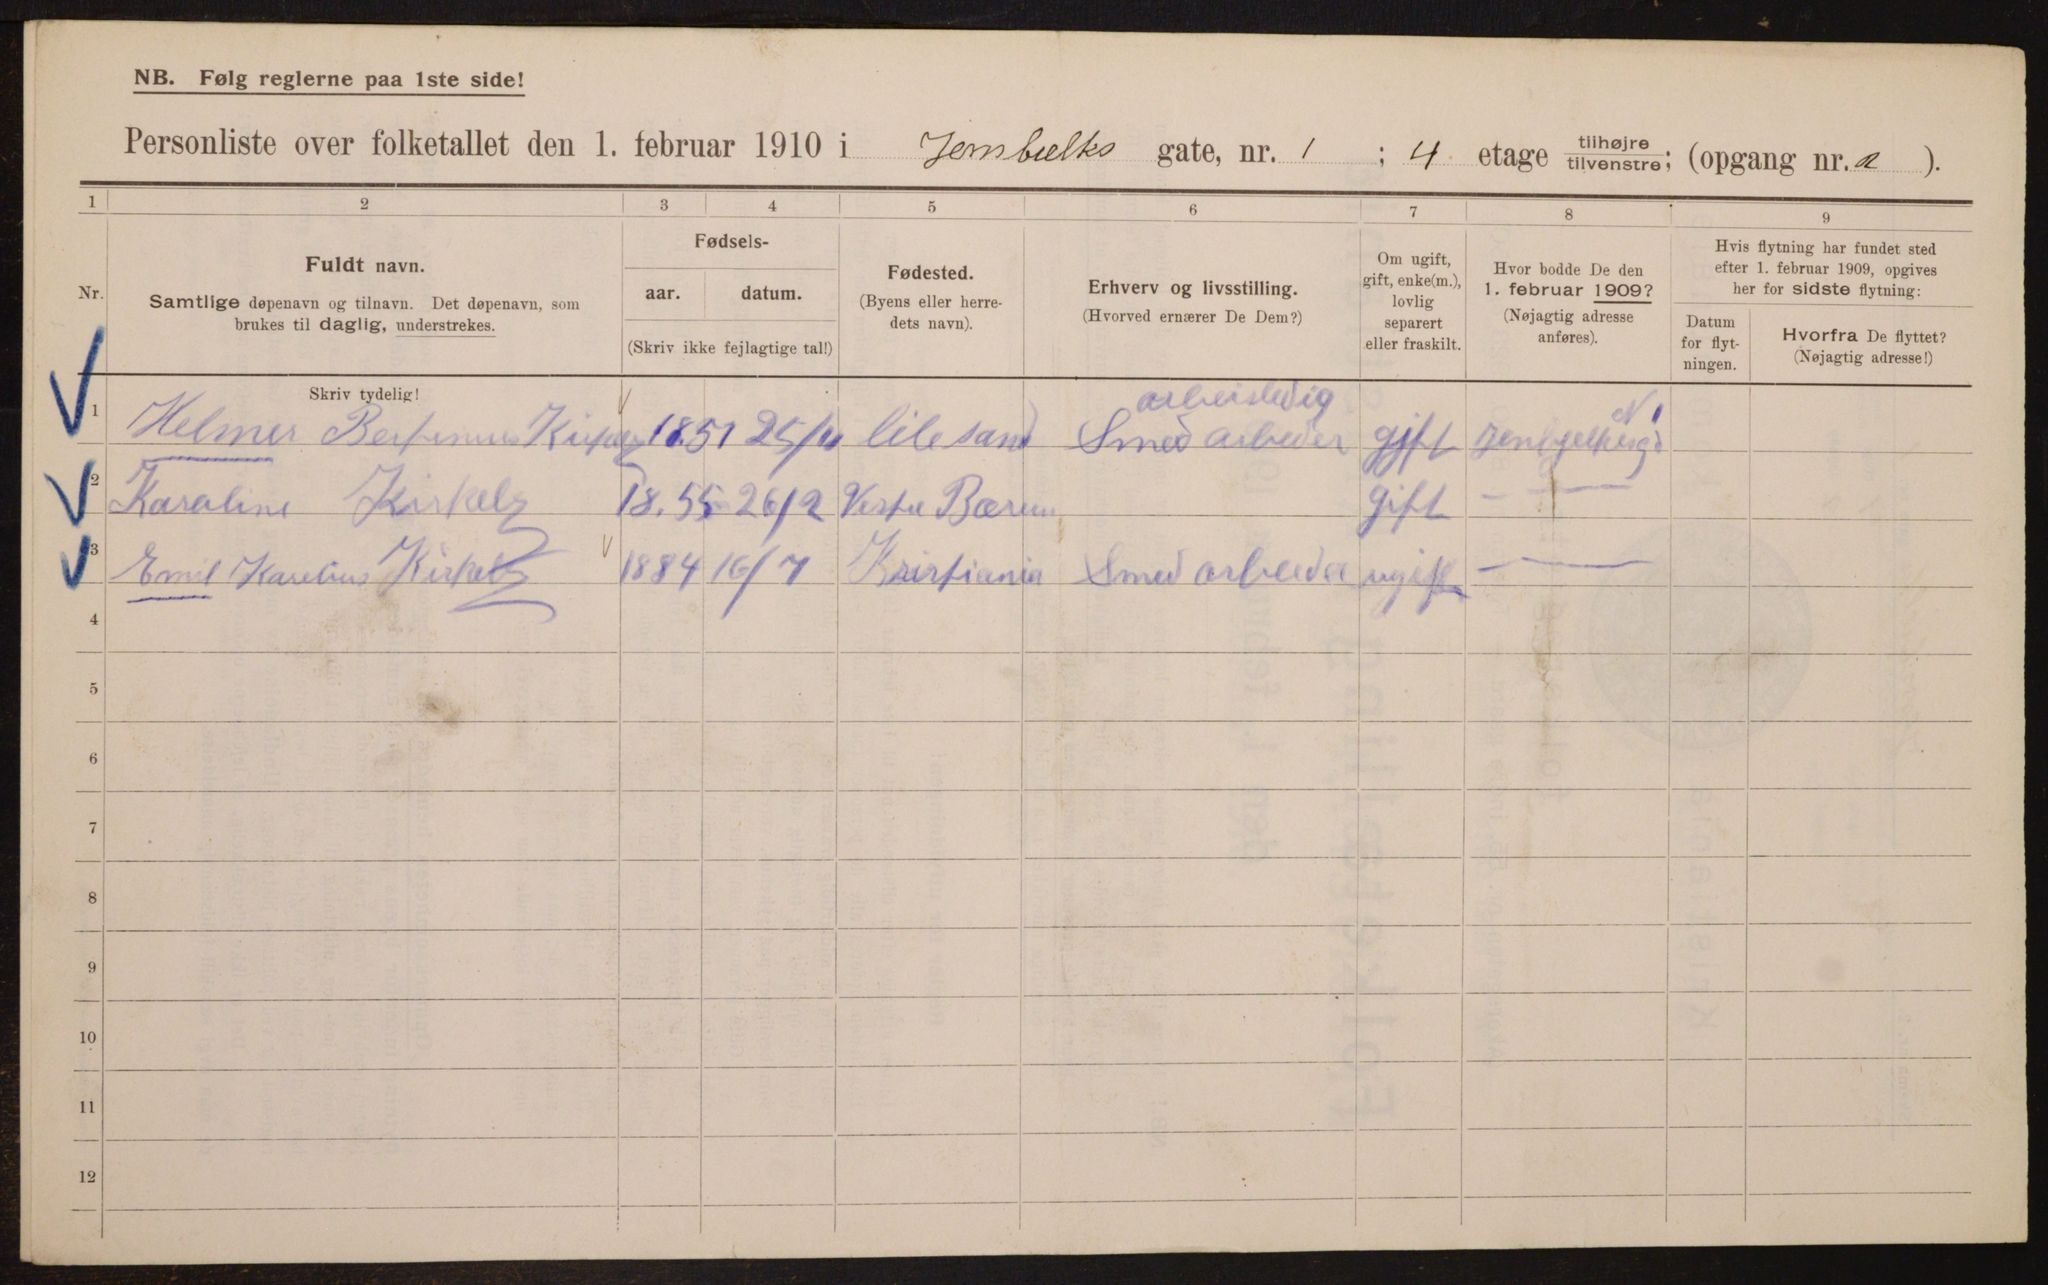 NB. Følg reglerne paa 1ste side!
Personliste over folketallet den 1. februar 1910 i Jernbælks gate, nr. 1 ; 4 etage tilhøjre tilvenstre; (opgang nr. a ).
1 2 3 4 5 6 7 8 9
Nr.
Fuldt navn.
Samtlige døpenavn og tilnavn. Det døpenavn, som
brukes til daglig, understrekes.
Skriv tydelig!
Fødsels-
aar. datum.
(Skriv ikke fejlagtige tal!)
Fødested.
(Byens eller herre-
dets navn).
Erhverv og livsstilling.
(Hvorved ernærer De Dem?)
Om ugift,
gift, enke(m.),
lovlig
separert
eller fraskilt.
Hvor bodde De den
1. februar 1909?
(Nøjagtig adresse
anføres).
Hvis flytning har fundet sted
efter 1. februar 1909, opgives
her for sidste flytning:
Datum
for flyt-
ningen.
Hvorfra De flyttet?
(Nøjagtig adresse!)
arbeisledig N 1
1 Helmer 1851 lilesand Smed arbeder gift
2 Karoline Kirkeby 18.55 26/2 Vestre Bærum gift — —
3 Emil Karelius Kirkeby 1884 16/7 Kristiania Smed arbeider ugift — —
4
5
6
7
8
9
10
11
12